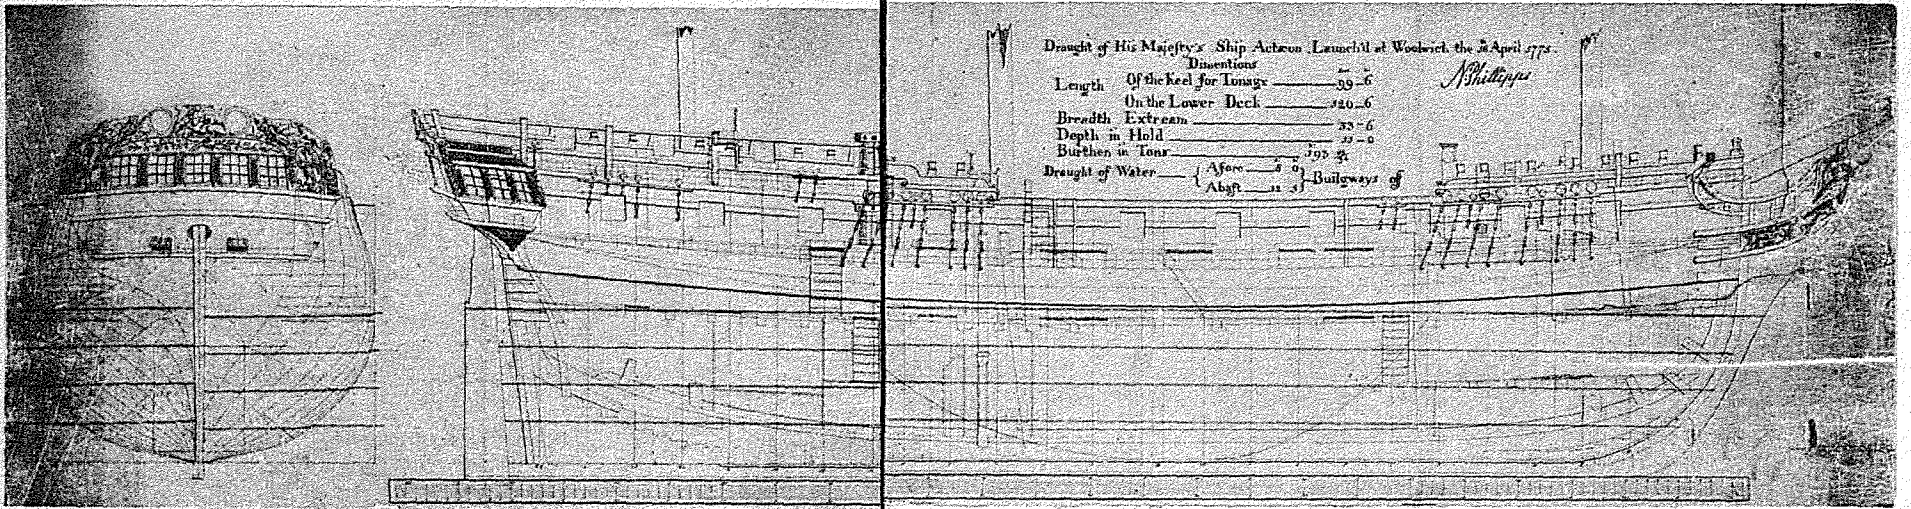 Draught of His Majesty's Ship Actæon Launch'd at Woolwich the 18 April 1775.
Dimentions
Length Of the Keel for Tonage 99_6
On the Lower Deck 120_6
Breadth Extream 33-6
Depth in Hold 11-0
Burthen in Tons 593
Draught of Water { Afore
Abaft } Builgways of
N Phillipps